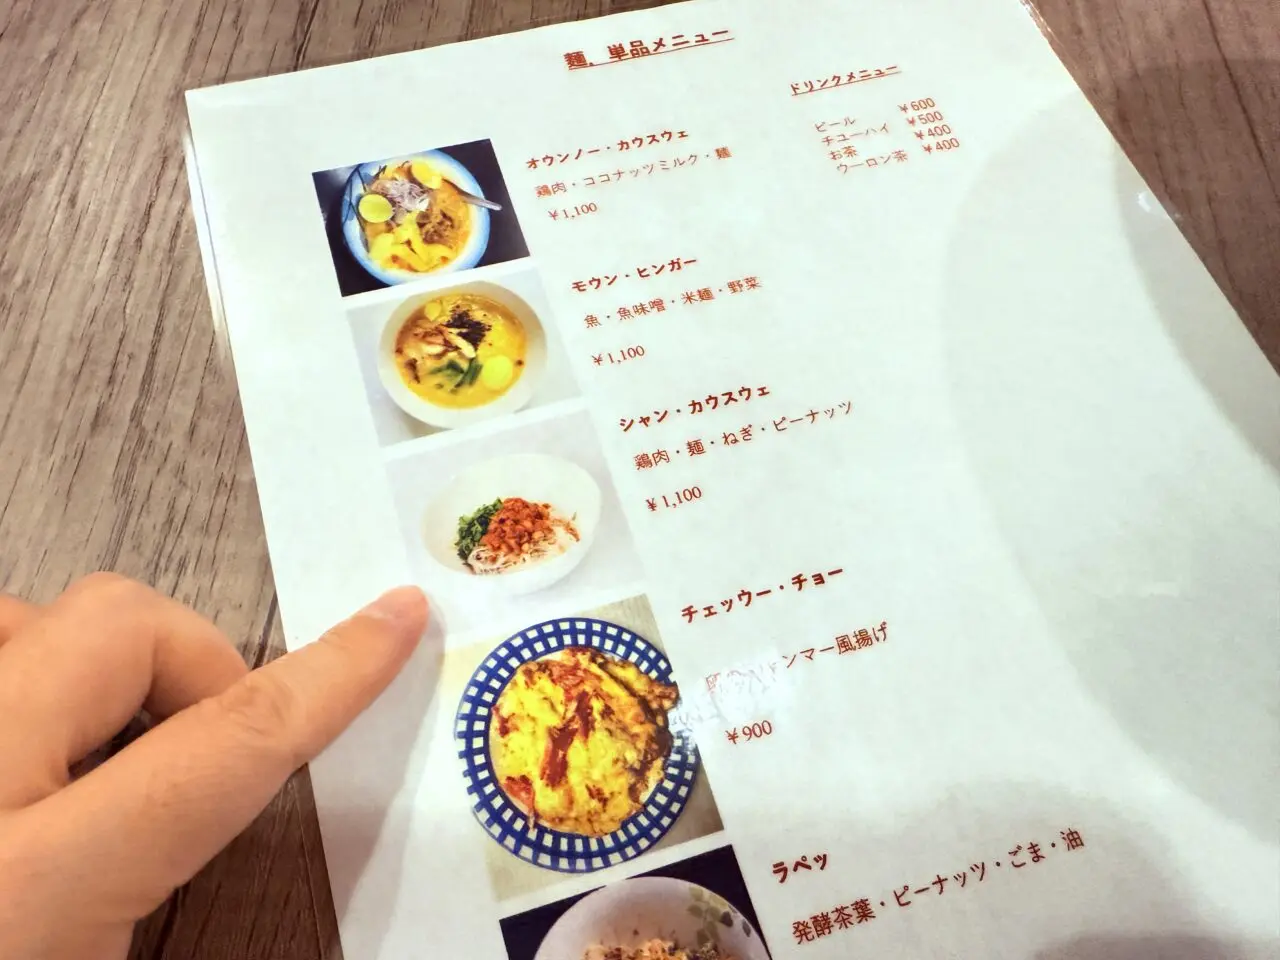 麺、単品メニュー
オウンノー・カウスウェ
鶏肉・ココナッツミルク・麺
￥1,100
モウン・ヒンガー
魚・魚味噌・米麺・野菜
￥1,100
シャン・カウスウェ
鶏肉・麺・ねぎ・ピーナッツ
￥1,100
チェッウー・チョー
ンマー風揚げ
￥900
ラペッ
発酵茶葉・ピーナッツ・ごま・油
ドリンクメニュー
ビール ￥600
チューハイ ￥500
お茶 ￥400
ウーロン茶 ￥400